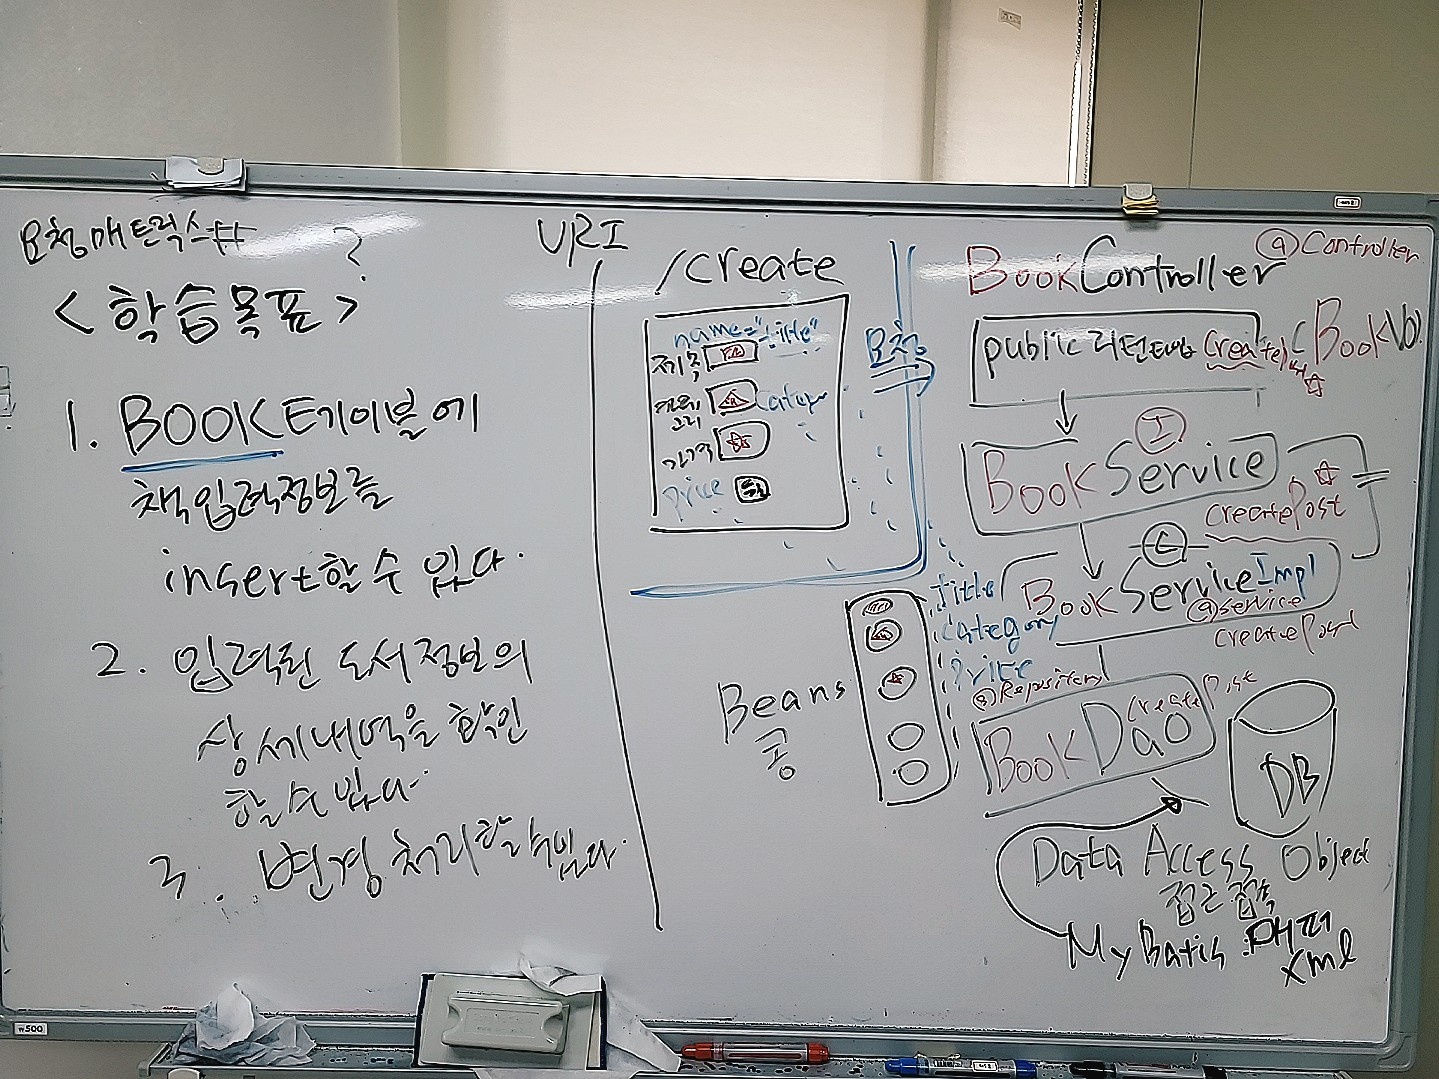 요청매트릭스
?
<학습목표>
1. BOOK테이블에
책입력정보를
insert할 수 있다.
2. 입력된 도서정보의
상세내역을 확인
할 수 있다.
3. 변경 처리할 수 있다.
URI
/create
name="title"
제목
가격
price
요청
Beans
콩
title
category
price
@Controller
BookController
public 리턴타입 create (BookVO)
I
BookService
createPost
C
BookServiceImpl
@Service
createPost
@Repository
createPost
BookDao
DB
Data Access Object
접근
MyBatis:매퍼
xml
₩500